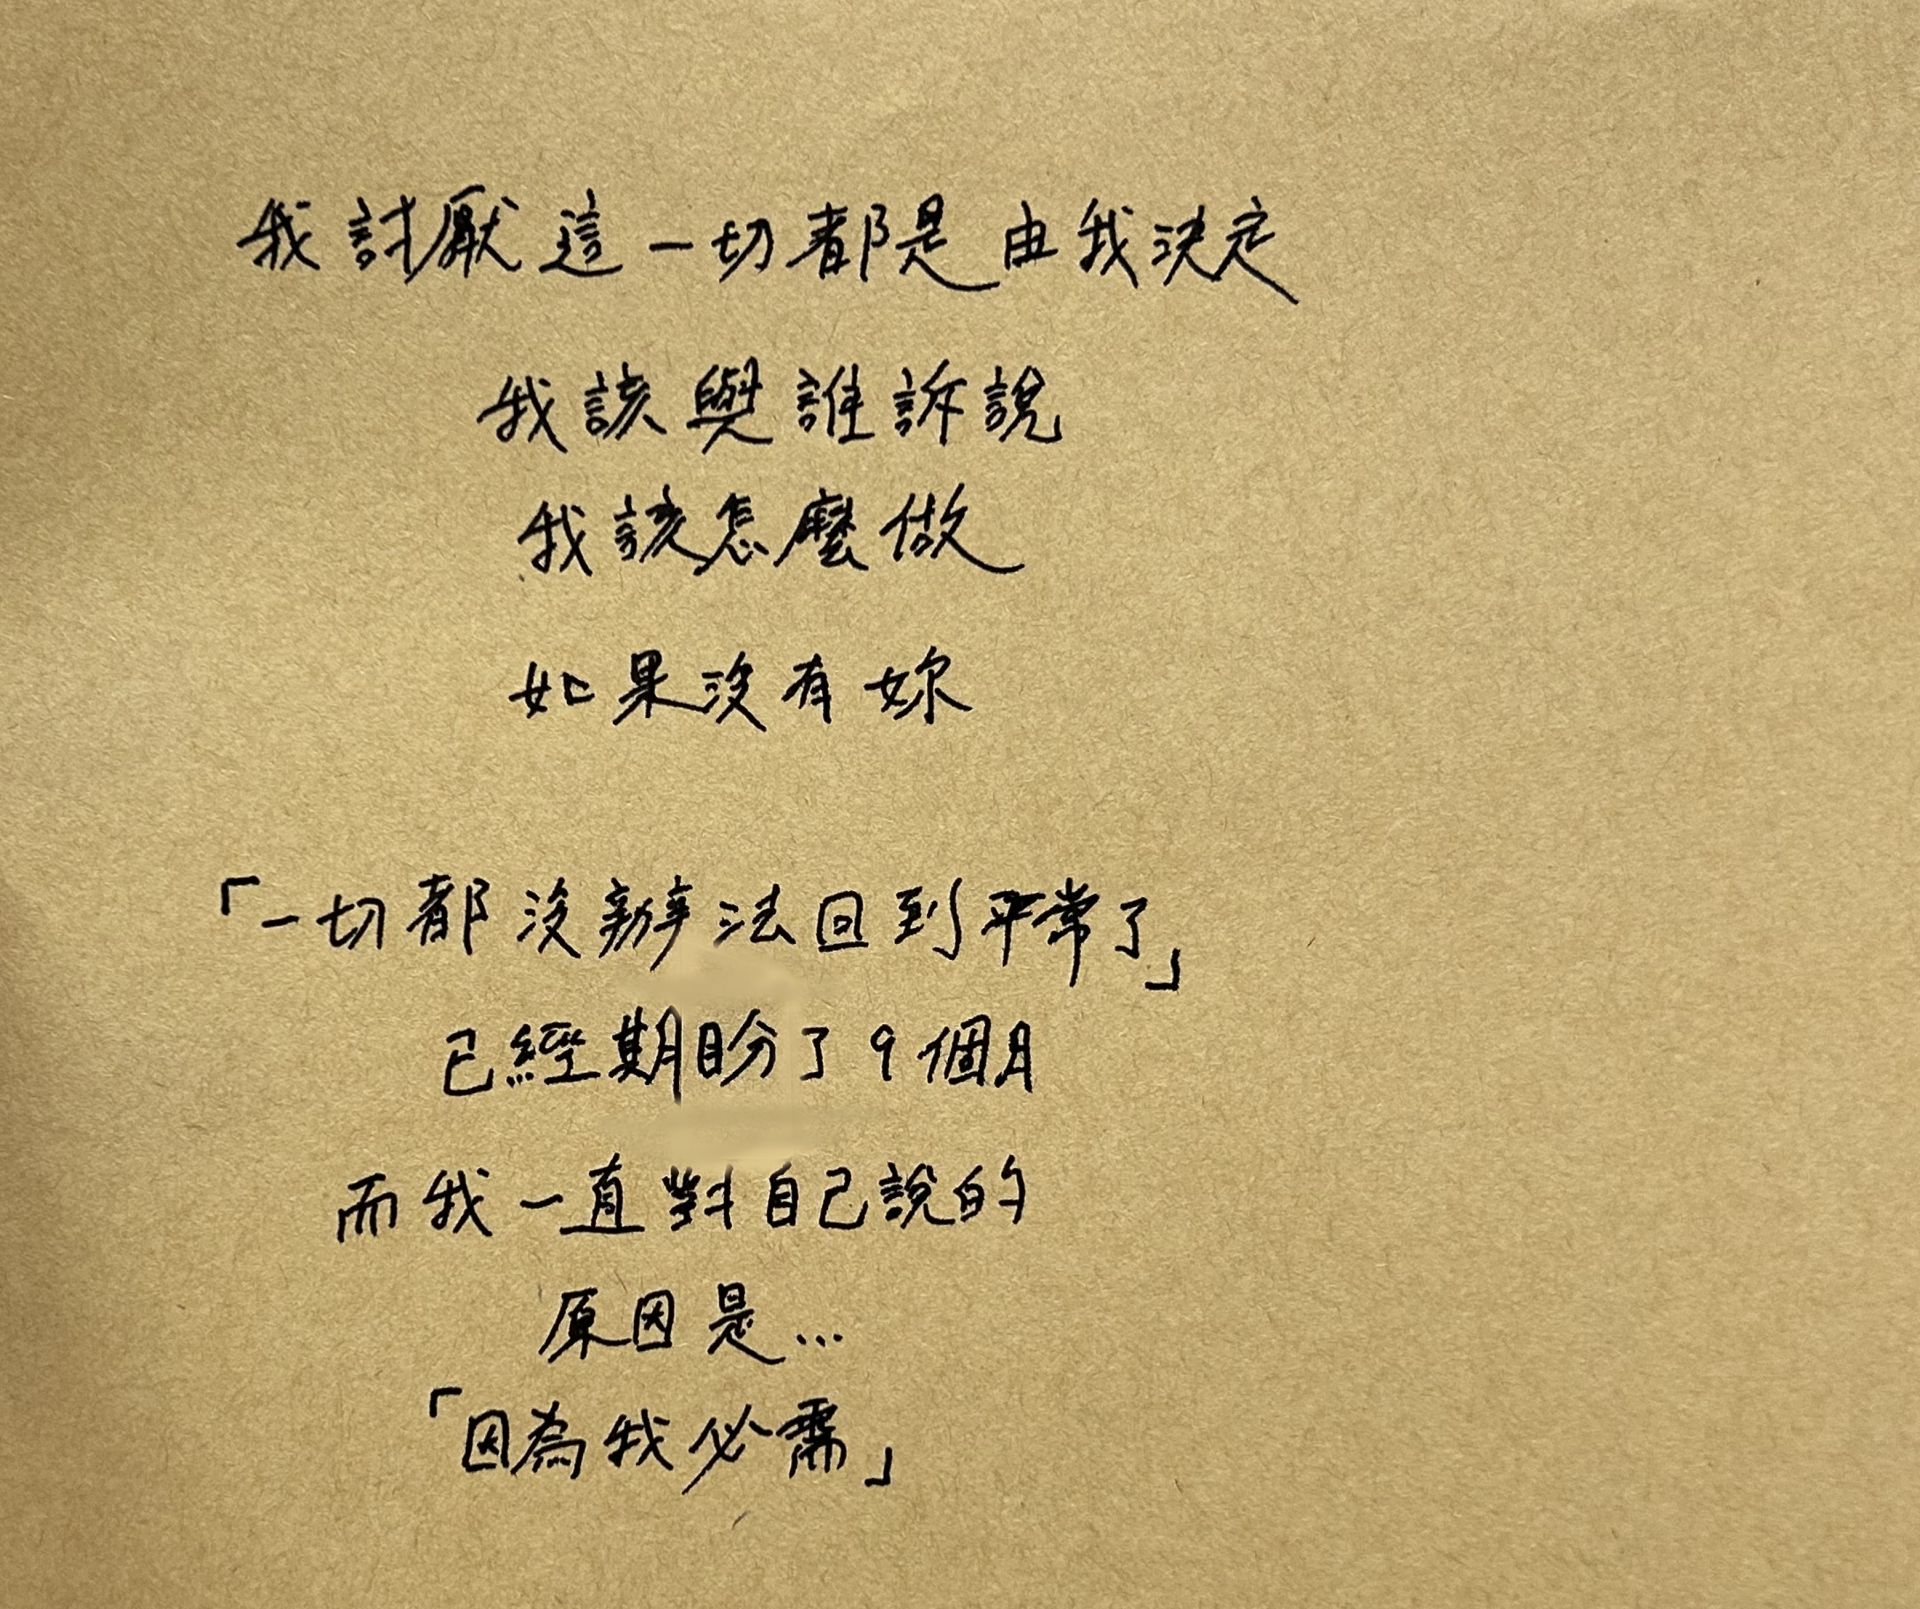 我討厭這一切都是由我決定
我該與誰訴說
我該怎麼做
如果沒有妳
「一切都沒辦法回到平常了」
已經期盼了9個月
而我一直對自己說的
原因是...
「因為我必需」